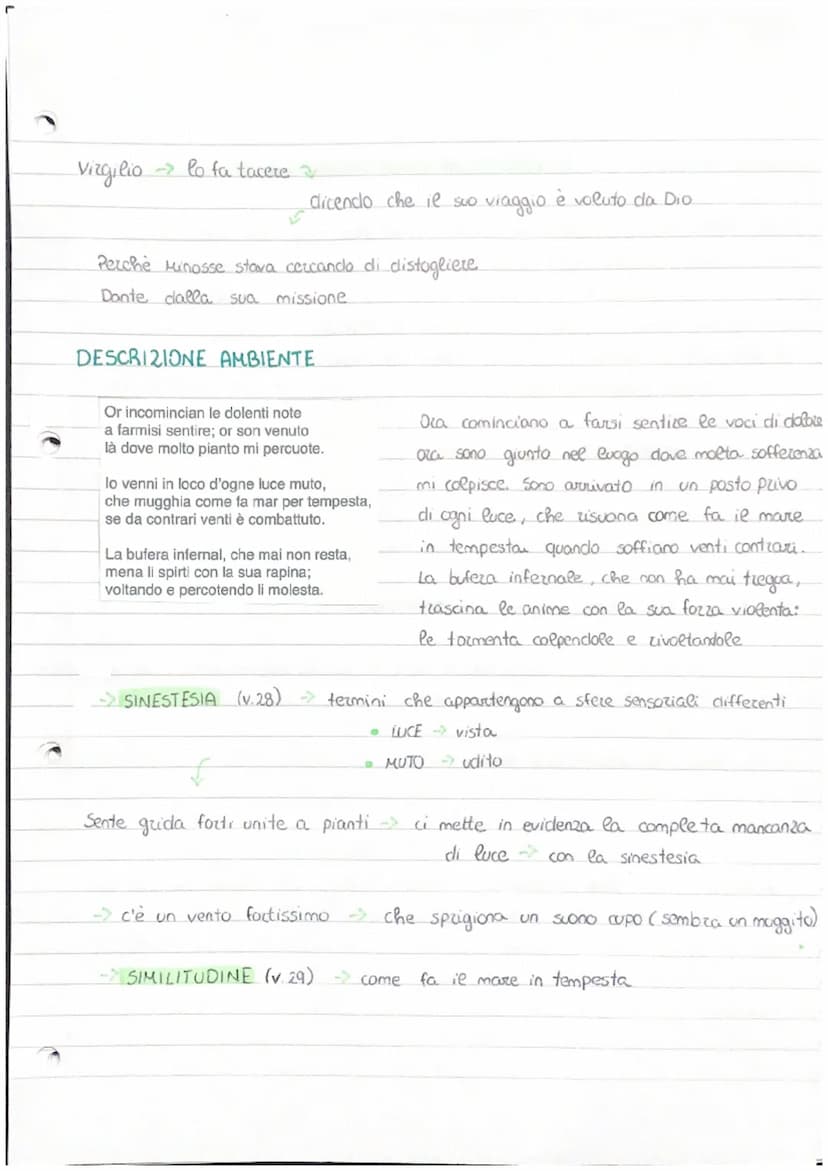 Virgilio → lo fa tacere
dicendo che il suo viaggio è voluto da Dio
Perchè Minosse stava cercando di distogliere
Dante dalla sua missione
DESCRIZIONE AMBIENTE
Or incomincian le dolenti note
a farmisi sentire; or son venuto
là dove molto pianto mi percuote.
Io venni in loco d'ogne luce muto,
che mugghia come fa mar per tempesta,
se da contrari venti è combattuto.
La bufera infernal, che mai non resta,
mena li spirti con la sua rapina;
voltando e percotendo li molesta.
Ora cominciano a farsi sentire le voci di dolore
ora sono giunto nel luogo dove molta sofferenza
mi colpisce. Sono arrivato in un posto privo
di ogni luce, che risuona come fa il mare
in tempesta quando soffiano venti contrari.
La bufera infernale, che non ha mai tregua,
trascina le anime con la sua forza violenta:
le tormenta colpendole e rivoltandole
→ SINESTESIA (v.28) → termini che appartengono a sfere sensoriali differenti
• LUCE → vista
• MUTO → udito
Sente grida forti unite a pianti → ci mette in evidenza la completa mancanza
di luce → con la sinestesia
→ c'è un vento fortissimo → che sprigiona un suono cupo (sembra un muggito)
→ SIMILITUDINE (v.29) → come fa il mare in tempesta